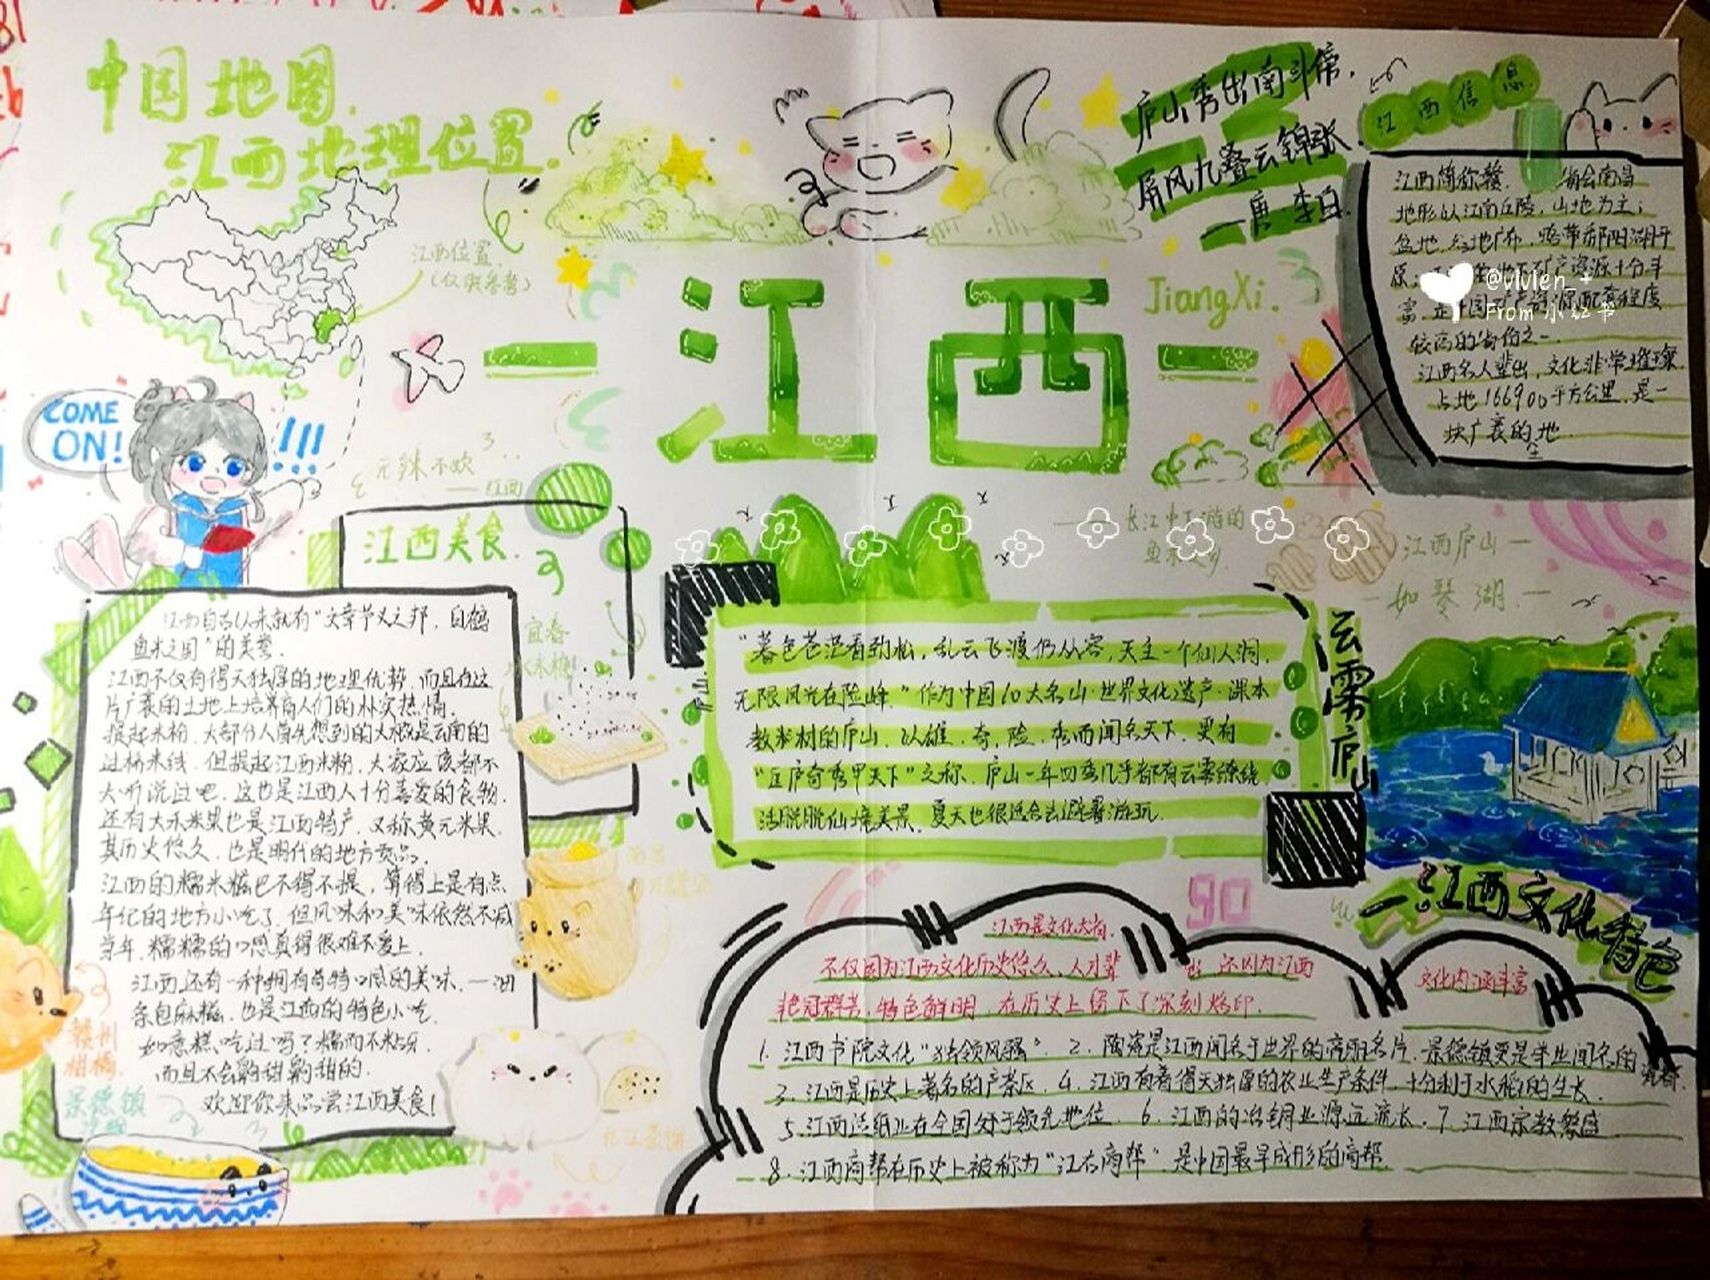 中国地图.
江西地理位置.
江西位置.
(仅供参考)
庐山秀出南斗傍.
屏风九叠云锦张.
—唐·李白.
江西信息
江西简称赣. 省会南昌
地形以江南丘陵, 山地为主;
盆地、谷地广布, 略带鄱阳湖平
原,
较高的省份之一.
江西名人辈出, 文化非常璀璨
占地166900平方公里. 是一
块广袤的土地
@vivien_+
From 小红书
一江西一
JiangXi.
COME
ON!
!!!
无辣不欢
——江西
江西美食.
江西自古以来就有“文章节义之邦, 白鹤
鱼米之国”的美誉.
江西不仅有得天独厚的地理优势, 而且在这
片广袤的土地上培养育人们的朴实热情.
提起米粉, 大部分人首先想到的大概是云南的
过桥米线, 但提起江西米粉, 大家应该都不
大听说过吧. 这也是江西人十分喜爱的食物.
还有大禾米果也是江西特产, 又称黄元米果.
其历史悠久, 也是明代的地方贡品.
江西的糯米糍也不得不提, 算得上是有点
年纪的地方小吃了, 但风味和美味依然不减
当年, 糯糯的口感真得很难不爱上.
江西还有一种拥有奇特口感的美味, —油
条包麻糍, 也是江西的特色小吃.
如意糕, 吃过吗? 糯而不粘牙.
而且不会齁甜齁甜的.
欢迎你来品尝江西美食!
宜春
赣州
柑橘.
景德镇
九江茶饼
—长江中下游的
鱼米之乡
江西庐山—
—如琴湖.—
“暮色苍茫看劲松, 乱云飞渡仍从容, 天生一个仙人洞,
无限风光在险峰.”作为中国10大名山·世界文化遗产·课本
教米树的庐山, 以雄, 奇, 险, 秀而闻名天下, 更有
“匡庐奇秀甲天下”之称. 庐山一年四季几乎都有云雾缭绕
活脱脱仙境美景, 夏天也很适合去避暑游玩.
云雾庐山
—江西文化特色
江西是文化大省.
不仅因为江西文化历史悠久、人才辈出, 还因为江西
文化内涵丰富
艳冠群芳, 特色鲜明, 在历史上留下了深刻烙印.
1. 江西书院文化“独领风骚” 2. 陶瓷是江西闻名于世界的亮丽名片, 景德镇更是举世闻名的瓷都.
3. 江西是历史上著名的产茶区. 4. 江西有着得天独厚的农业生产条件, 十分利于水稻的生长.
5. 江西造纸业在全国处于领先地位. 6. 江西的冶铜业源远流长. 7. 江西宗教繁盛
8. 江西商帮在历史上被称为“江右商帮”是中国最早成形的商帮.